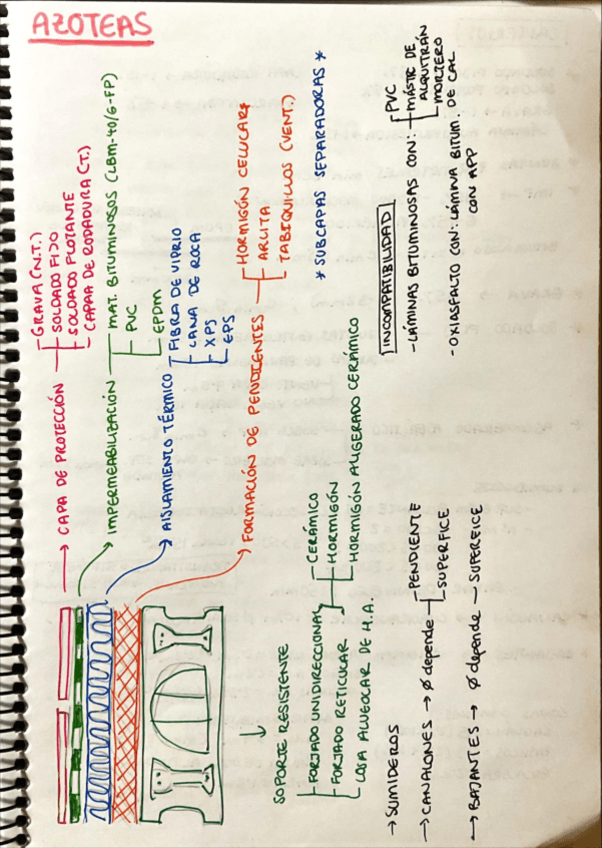 AZOTEAS
→ CAPA DE PROTECCIÓN
GRAVA (N.T.)
SOLDADO FIJO
SOLDADO FLOTANTE
CAPA DE RODADURA (T.)
→ IMPERMEABILIZACIÓN
MAT. BITUMINOSOS (LBM-40/G-FP)
PVC
EPDM
→ AISLAMIENTO TÉRMICO
FIBRA DE VIDRIO
LANA DE ROCA
XPS
EPS
→ FORMACIÓN DE PENDIENTES
HORMIGÓN CELULAR
ARLITA
TABIQUILLOS (VENT.)
* SUBCAPAS SEPARADORAS *
SOPORTE RESISTENTE
FORJADO UNIDIRECCIONAL
FORJADO RETICULAR
LOSA ALVEOLAR DE H.A.
CERÁMICO
HORMIGÓN
HORMIGÓN ALIGERADO CERÁMICO
INCOMPATIBILIDAD
- LÁMINAS BITUMINOSAS CON:
PVC
MÁSTIC DE ALQUITRÁN
MORTERO DE CAL
- OXIASFALTO CON: LÁMINA BITUM. CON APP
→ SUMIDEROS
→ CANALONES → Ø depende
PENDIENTE
SUPERFICE
→ BAJANTES → Ø depende — SUPERFICE